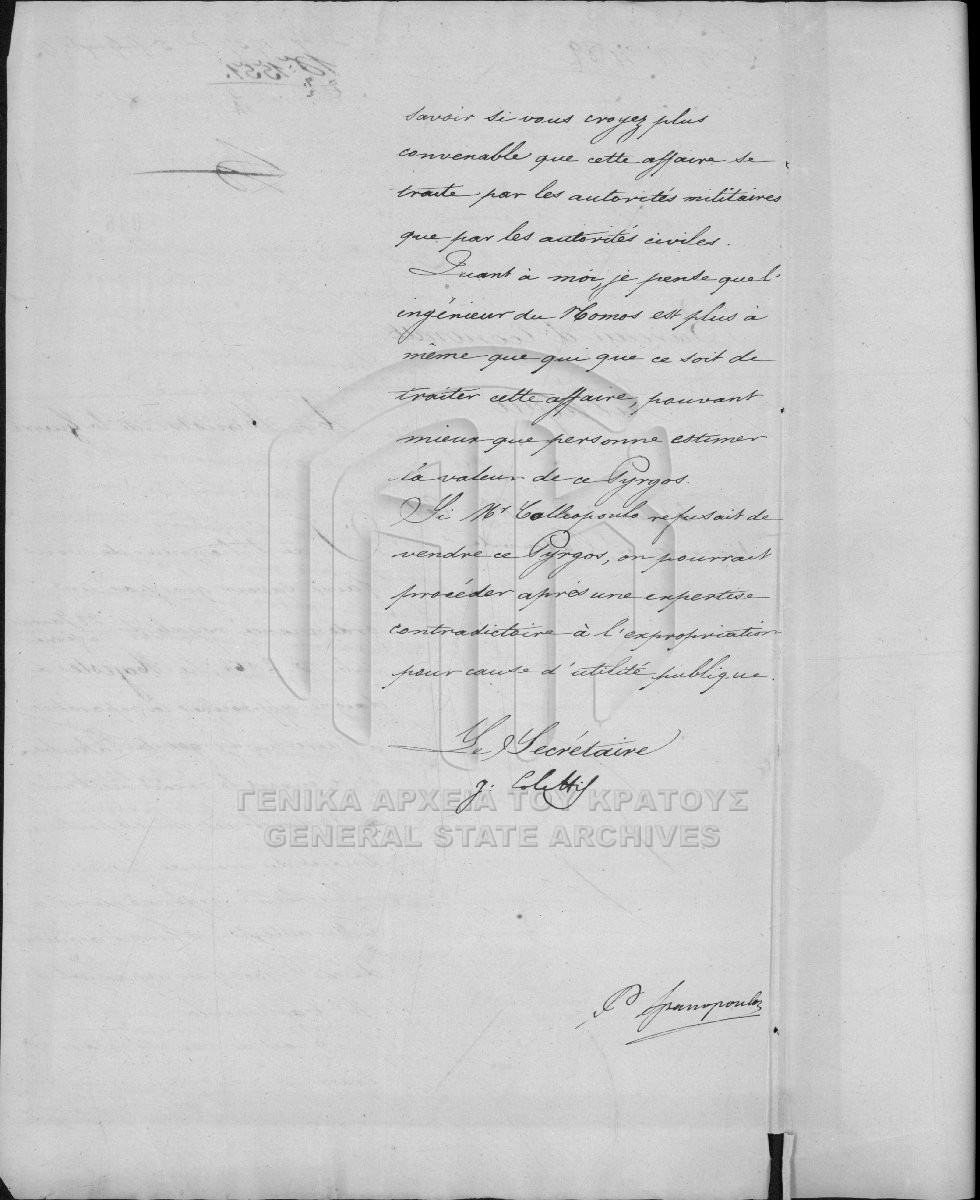 savoir si vous croyez plus
convenable que cette affaire se
traite par les autorités militaires
que par les autorités civiles.
Quant à moi, je pense que l'
ingénieur du Nomos est plus à
même que qui que ce soit de
traiter cette affaire, pouvant
mieux que personne estimer
la valeur de ce Pyrgos.
Si Mr Colliopoulo refusait de
vendre ce Pyrgos, on pourrait
procéder après une expertise
contradictoire à l'expropriation
pour cause d'utilité publique.
Le Secrétaire
J. Colettis
ΓΕΝΙΚΑ ΑΡΧΕΙΑ ΤΟΥ ΚΡΑΤΟΥΣ
GENERAL STATE ARCHIVES